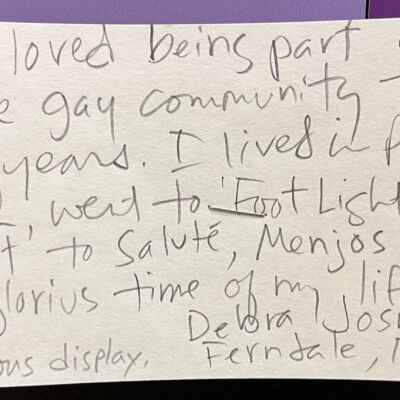 loved being part
gay community
years. I lived in
went to 'FootLigh
to Saluté, Menjos
glorius time of my lif
Debra Jos
ous display. Ferndale,